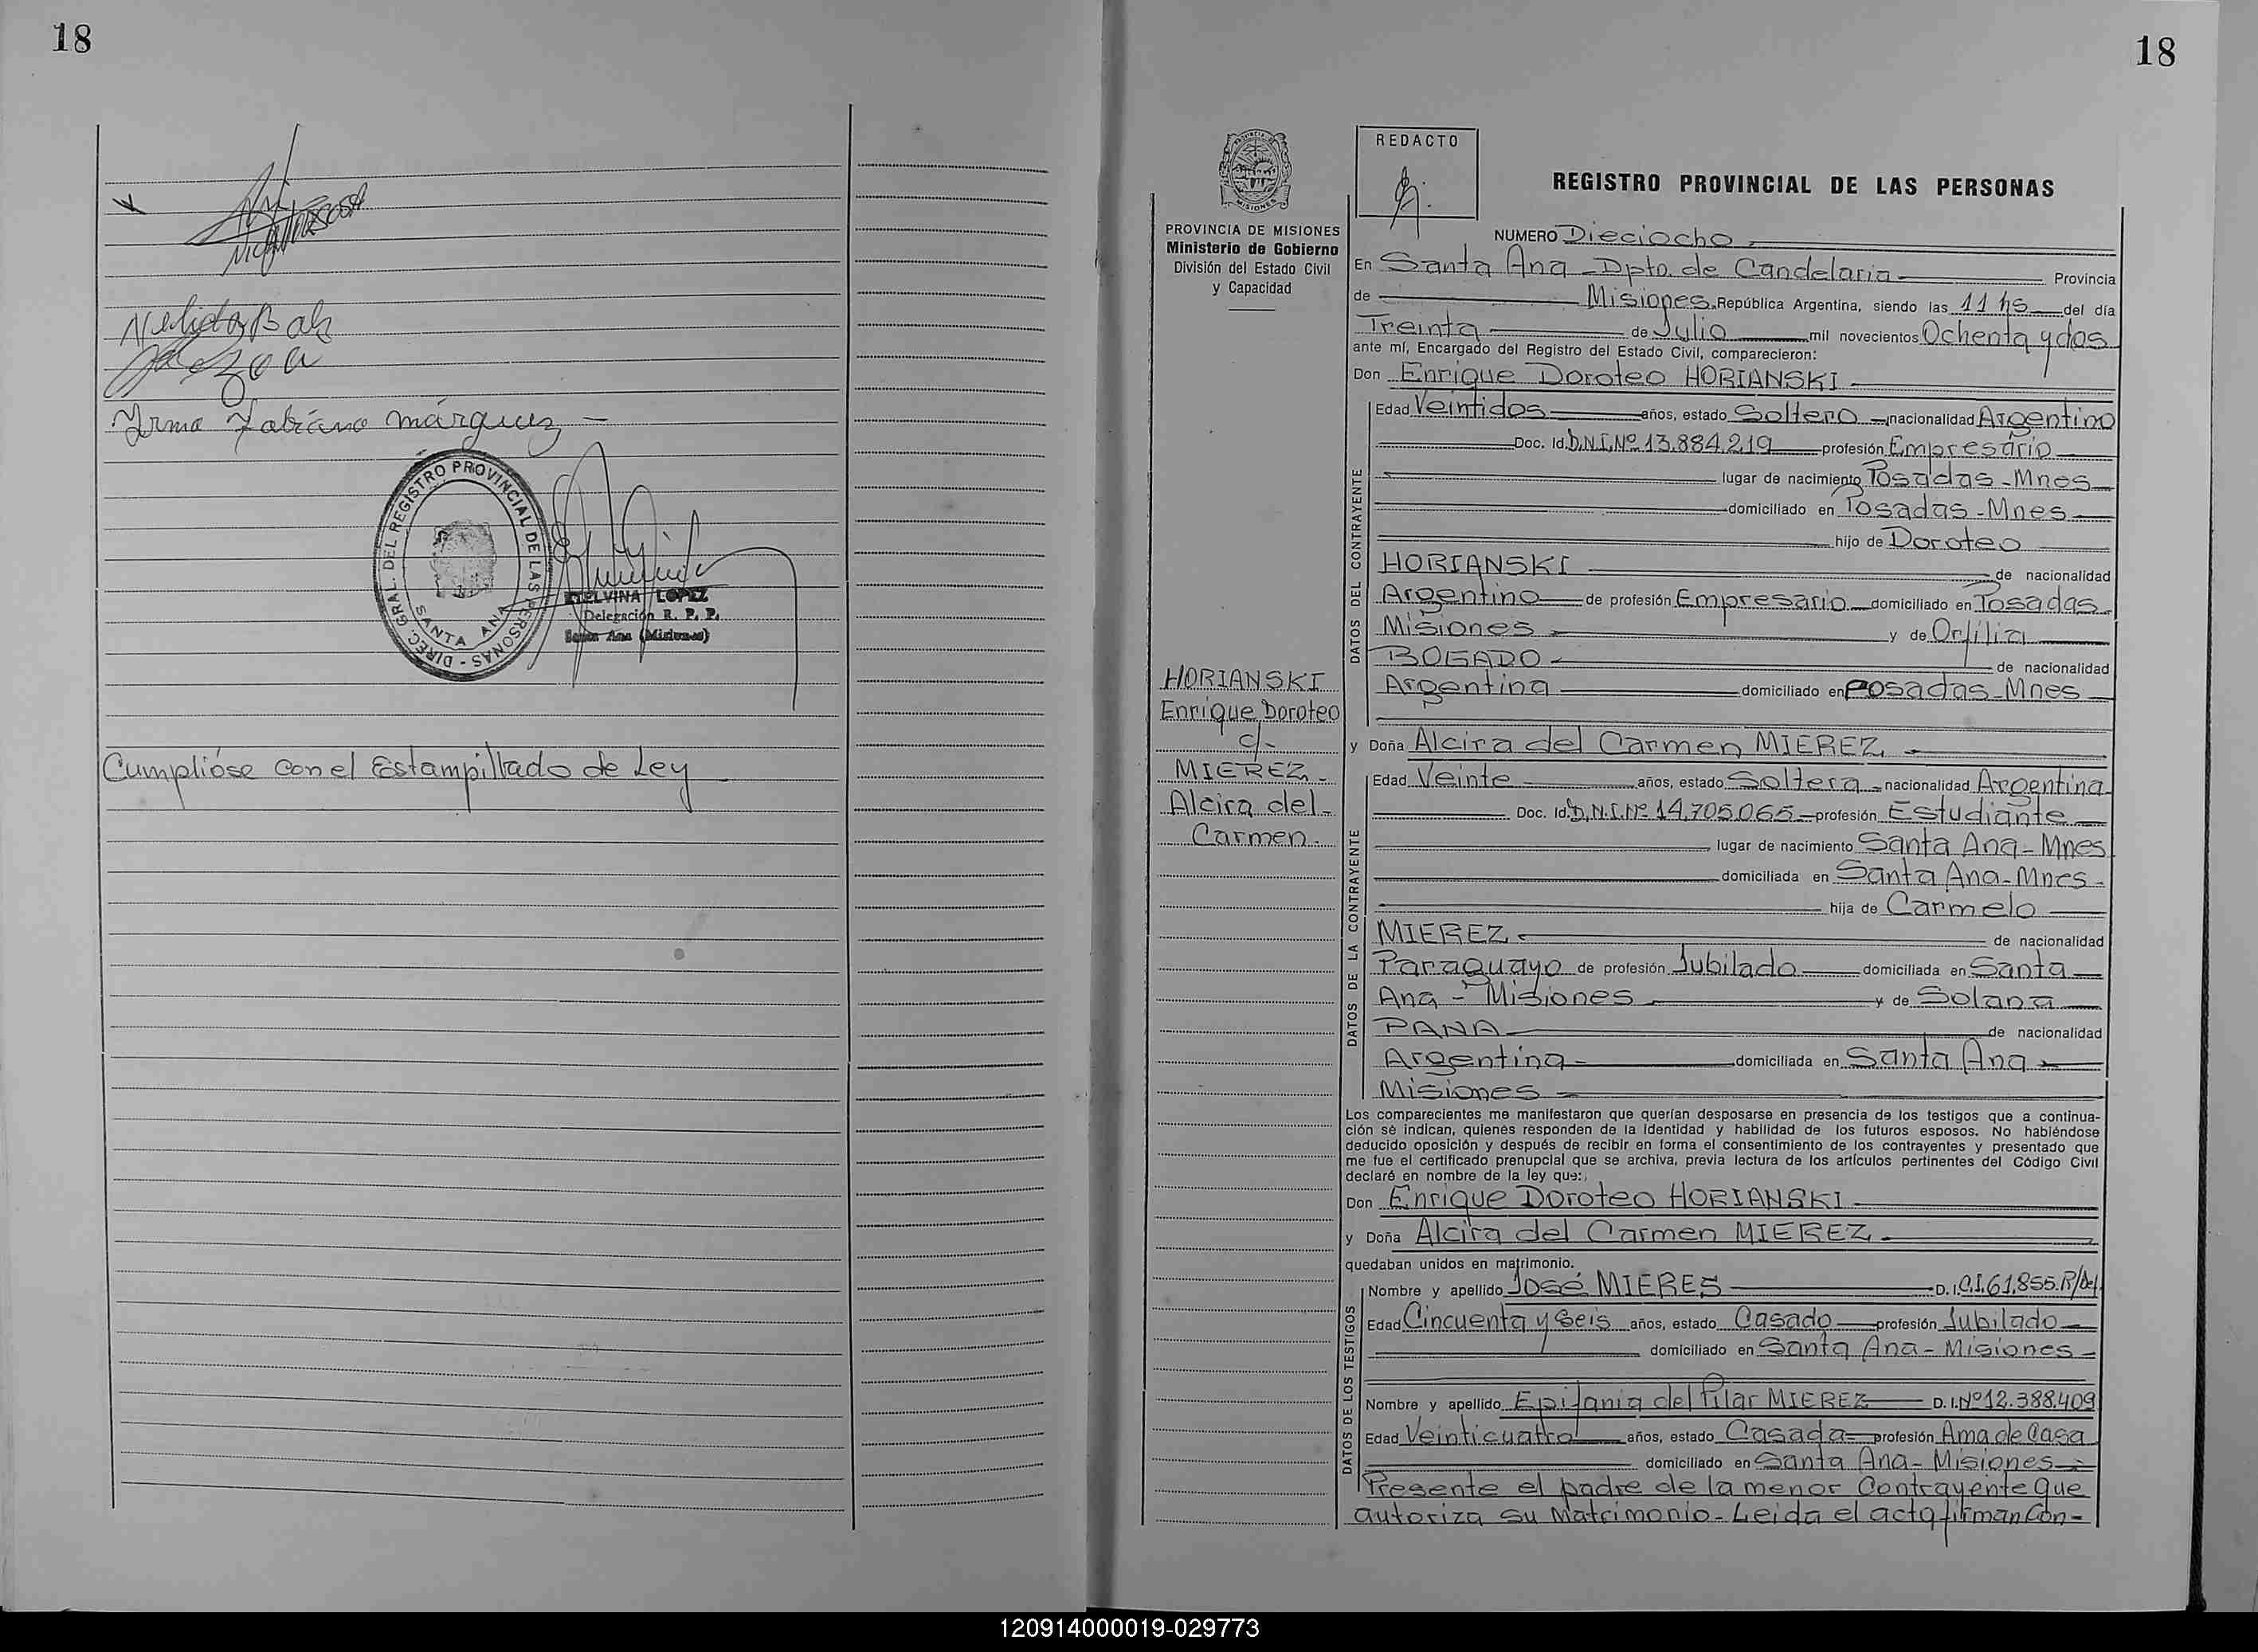 18
Nelida Bak
Irma Fabiana Márquez -
DIREC. GRAL. DEL REGISTRO PROVINCIAL DE LAS PERSONAS -
SANTA ANA
ETELVINA LOPEZ
Delegación R. P. P.
Santa Ana (Misiones)
Cumplióse con el Estampillado de Ley
18
MISIONES
PROVINCIA DE MISIONES
Ministerio de Gobierno
División del Estado Civil
y Capacidad
HORIANSKI
Enrique Doroteo
c/-
MIEREZ -
Alcira del -
Carmen.
REDACTO
REGISTRO PROVINCIAL DE LAS PERSONAS
NUMERO Dieciocho
En Santa Ana - Dpto. de Candelaria Provincia
de Misiones República Argentina, siendo las 11 hs del día
Treinta de Julio mil novecientos Ochenta y dos
ante mí, Encargado del Registro del Estado Civil, comparecieron:
Don Enrique Doroteo HORIANSKI
DATOS DEL CONTRAYENTE
Edad Veintidos años, estado Soltero nacionalidad Argentino
Doc. Id. D.N.I. Nº 13.884.219 profesión Empresario
lugar de nacimiento Posadas - Mnes
domiciliado en Posadas - Mnes
hijo de Doroteo
HORIANSKI de nacionalidad
Argentino de profesión Empresario domiciliado en Posadas
Misiones y de Orfilia
BOGADO de nacionalidad
Argentina domiciliado en Posadas - Mnes
y Doña Alcira del Carmen MIEREZ
DATOS DE LA CONTRAYENTE
Edad Veinte años, estado Soltera nacionalidad Argentina
Doc. Id. D.N.I. Nº 14.705.065 profesión Estudiante
lugar de nacimiento Santa Ana - Mnes
domiciliada en Santa Ana - Mnes -
hija de Carmelo
MIEREZ de nacionalidad
Paraguayo de profesión Jubilado domiciliada en Santa
Ana - Misiones y de Solana
PANA de nacionalidad
Argentina - domiciliada en Santa Ana
Misiones
Los comparecientes me manifestaron que querían desposarse en presencia de los testigos que a continua-
ción se indican, quienes responden de la identidad y habilidad de los futuros esposos. No habiéndose
deducido oposición y después de recibir en forma el consentimiento de los contrayentes y presentado que
me fue el certificado prenupcial que se archiva, previa lectura de los artículos pertinentes del Código Civil
declaré en nombre de la ley que:
Don Enrique Doroteo HORIANSKI
y Doña Alcira del Carmen MIEREZ
quedaban unidos en matrimonio.
DATOS DE LOS TESTIGOS
Nombre y apellido José MIERES D. I. C.I. 61.855
Edad Cincuenta y Seis años, estado Casado profesión Jubilado
domiciliado en Santa Ana - Misiones -
Nombre y apellido Epifania del Pilar MIEREZ D. I. Nº 12.388.409
Edad Veinticuatro años, estado Casada profesión Ama de Casa
domiciliado en Santa Ana - Misiones
Presente el padre de la menor Contrayente que
autoriza su Matrimonio - Leida el acta firman Con-
120914000019-029773